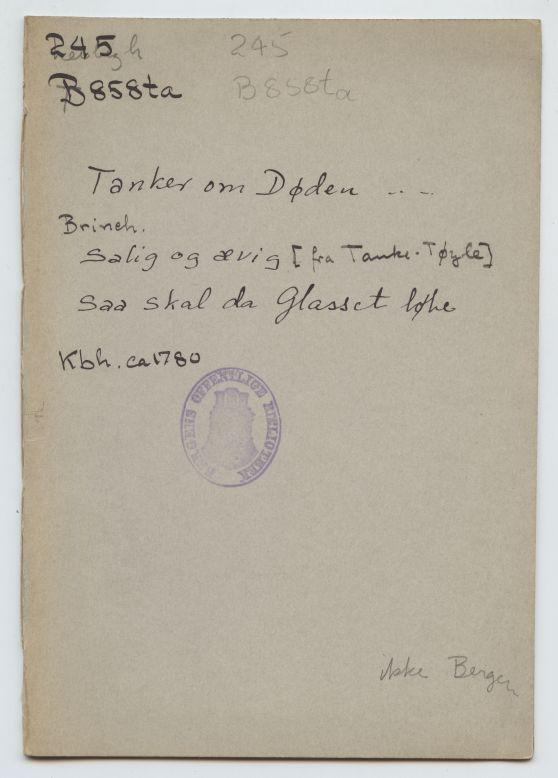 245 245
B858ta B858ta
Tanker om Døden ...
Brinch.
Salig og ævig [fra Tanke-Tøyle]
Saa skal da Glasset løbe
Kbh. ca 1780
BERGENS OFFENTLIGE BIBLIOTHEK
ikke Bergen